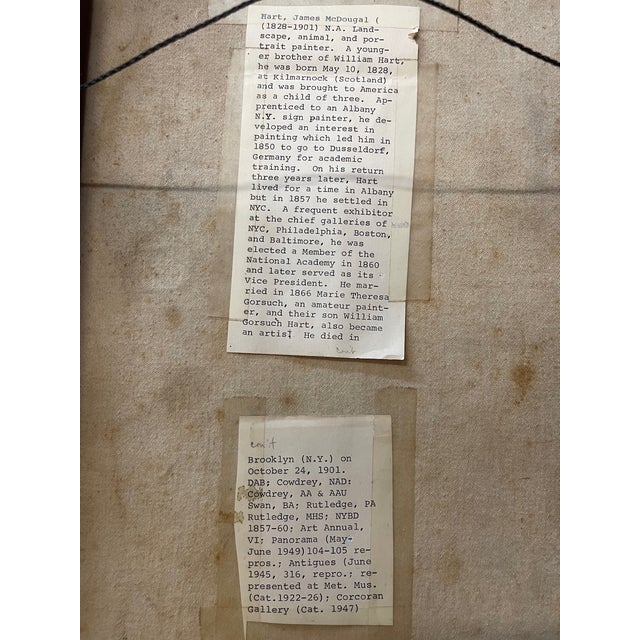 Hart, James McDougal (
(1828-1901) N.A. Land-
scape, animal, and por-
trait painter. A young-
er brother of William Hart,
he was born May 10, 1828,
at Kilmarnock (Scotland)
and was brought to America
as a child of three. Ap-
prenticed to an Albany
N.Y. sign painter, he de-
veloped an interest in
painting which led him in
1850 to go to Dusseldorf,
Germany for academic
training. On his return
three years later, Hart
lived for a time in Albany
but in 1857 he settled in
NYC. A frequent exhibitor
at the chief galleries of
NYC, Philadelphia, Boston,
and Baltimore, he was
elected a Member of the
National Academy in 1860
and later served as its
Vice President. He mar-
ried in 1866 Marie Theresa
Gorsuch, an amateur paint-
er, and their son William
Gorsuch Hart, also became
an artist. He died in
con't
Brooklyn (N.Y.) on
October 24, 1901.
DAB; Cowdrey, NAD:
Cowdrey, AA & AAU
Swan, BA; Rutledge, PA
Rutledge, MHS; NYBD
1857-60; Art Annual,
VI; Panorama (May-
June 1949)104-105 re-
pros.; Antiques (June
1945, 316, repro.; re-
presented at Met. Mus.
(Cat.1922-26); Corcoran
Gallery (Cat. 1947)